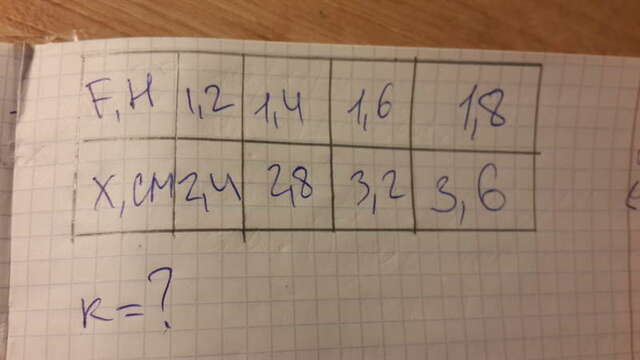 F, Н 1,2 1,4 1,6 1,8
X, см 2,4 2,8 3,2 3,6
к = ?